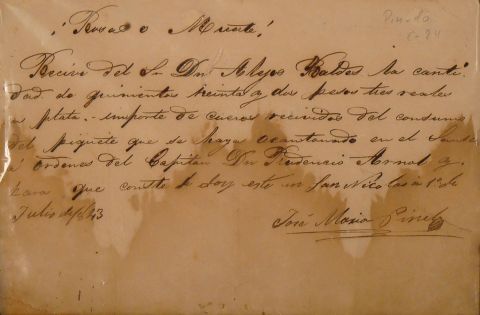 ¡Rosas o Muerte!
Pineda
C-24
Recivi del Sr Dn Alejo Valdes la canti
dad de quinientos treinta y dos pesos tres reales
plata - importe de cueros recividos del consumo
del piquete que se haya acantonado en el
ordenes del Capitan Dn Prudencio Arnol y
para que conste le doy este en San Nicolas a 1º de
Julio de
José Maria Pined